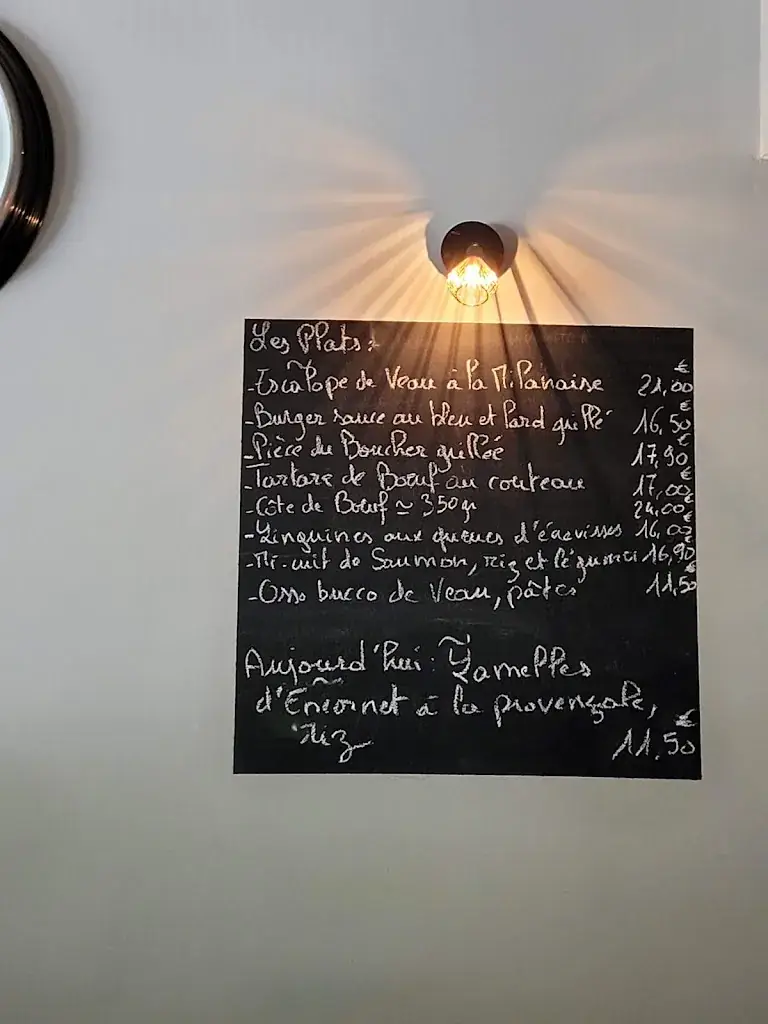 Les Plats:
-Escalope de Veau à la Milanaise 21,00 €
-Burger sauce au bleu et lard grillé 16,50 €
-Pièce du Boucher grillée 17,90 €
-Tartare de Bœuf au couteau 17,00 €
-Côte de Bœuf ≃ 350gr 24,00 €
-Linguines aux queues d'écrevisses 16,00 €
-Mi-cuit de Saumon, riz et légumes 16,90 €
-Osso bucco de Veau, pâtes 11,50 €
Aujourd'hui: Lamelles
d'Encornet à la provençale,
riz 11.50 €